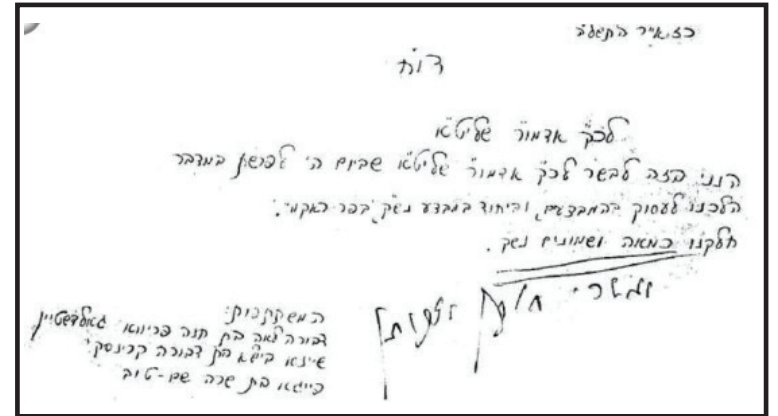 כז אייר ה'תשל"ה
דו"ח
לכ"ק אדמו"ר שליט"א
הנני בזה לבשר לכ"ק אדמו"ר שליט"א שביום ה' לפרשת במדבר
הלכנו לעסוק בהמבצעים, וביחוד במבצע נשק, בפר
חלקנו כמאה ושמונים נשק.
ואשרי חלקן וזכותן
המשתתפות:
דבורה לאה בת חנה פריווא גאלדשטיין
שיינא ביילא בת דבורה קרינסקי
פייגא בת שרה שם-טוב